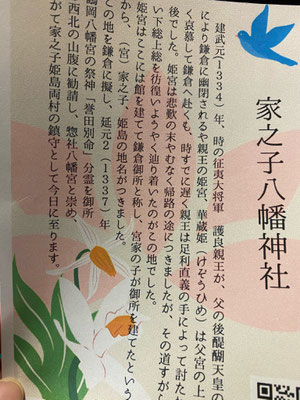 家之子八幡神社
建武元(1334)年、時の征夷大将軍 護良親王が、父の後醍醐天皇の
により鎌倉に幽閉されるや親王の姫宮、華蔵姫(けぞうひめ)は父宮の上
く哀慕して鎌倉へ赴くも、時すでに遅く親王は足利直義の手によって討たれ
後でした。姫宮は悲歎の末やむなく帰路の途につきましたが、その道すがら
い下総上総を彷徨いようやく辿り着いたのがこの地でした。
姫宮はここに館を建てて鎌倉御所と称し、宮家の子が御所を建てたという
から、(宮)家之子、姫島の地名がつきました。
この地を鎌倉に擬し、延元2(1337)年
鶴岡八幡宮の祭神「誉田別命」分霊を御所
西北の山腹に勧請し、惣社八幡宮と崇め、
がて家之子姫島両村の鎮守として今日に至ります。